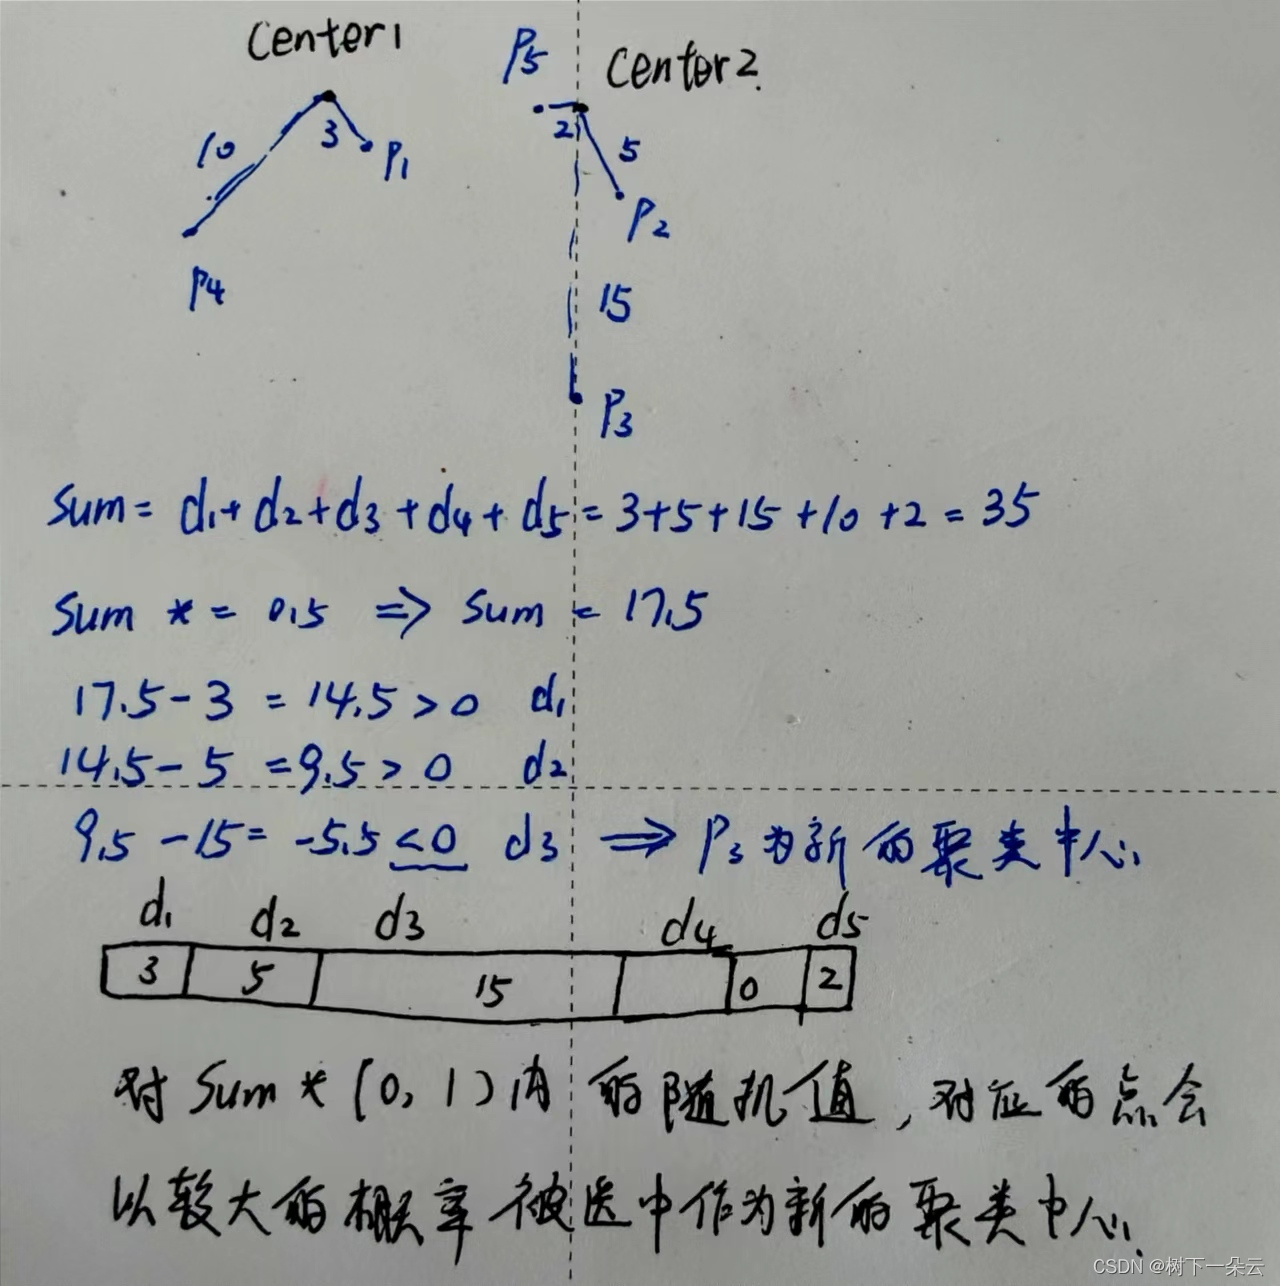 Center1
P5 Center2.
10 3 P1
2 5
P4 P2
15
P3
Sum = d1 + d2 + d3 + d4 + d5 = 3+5+15+10+2 = 35
Sum *= 0.5 ⇒ Sum = 17.5
17.5 - 3 = 14.5 > 0 d1
14.5 - 5 = 9.5 > 0 d2
9.5 - 15 = -5.5 < 0 d3 ⇒ P3为新的聚类中心.
d1 d2 d3 d4 d5
3 5 15 0 2
对Sum * (0, 1)内的随机值, 对应的点会
以较大的概率被选中作为新的聚类中心.
CSDN @树下一朵云